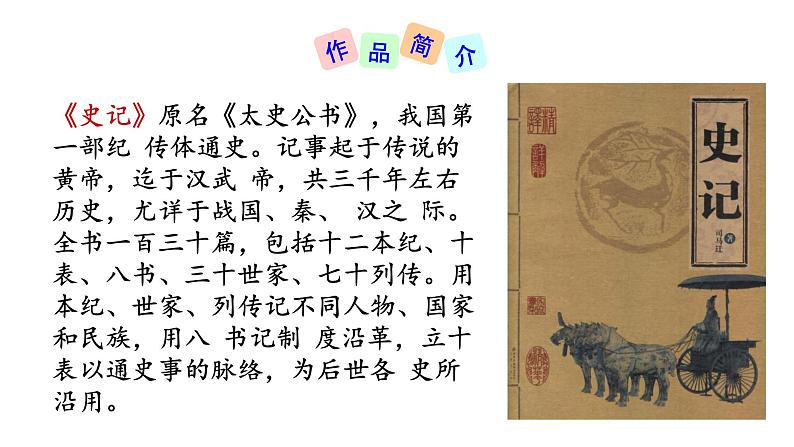 作品简介
《史记》原名《太史公书》，我国第
一部纪 传体通史。记事起于传说的
黄帝，迄于汉武 帝，共三千年左右
历史，尤详于战国、秦、 汉之 际。
全书一百三十篇，包括十二本纪、十
表、八书、三十世家、七十列传。用
本纪、世家、列传记不同人物、国家
和民族，用八 书记制 度沿革，立十
表以通史事的脉络，为后世各 史所
沿用。
史记
司马迁 著